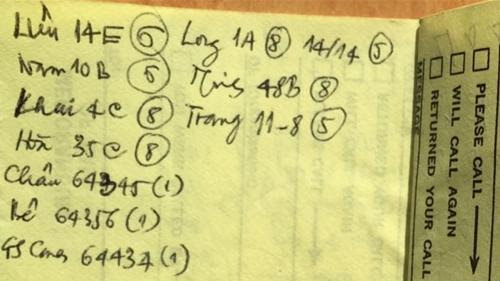 Liên 14E (5) Long 1A (8) 14/14 (5)
Nam 10B (5) 48B (8)
Khai 4C (8) Trang 11-8 (5)
Hòa 35C (8)
Châu 64345 (1)
Bé 64356 (1)
64434 (1)
PLEASE CALL
WILL CALL AGAIN
RETURNED YOUR CALL
MESSAGE